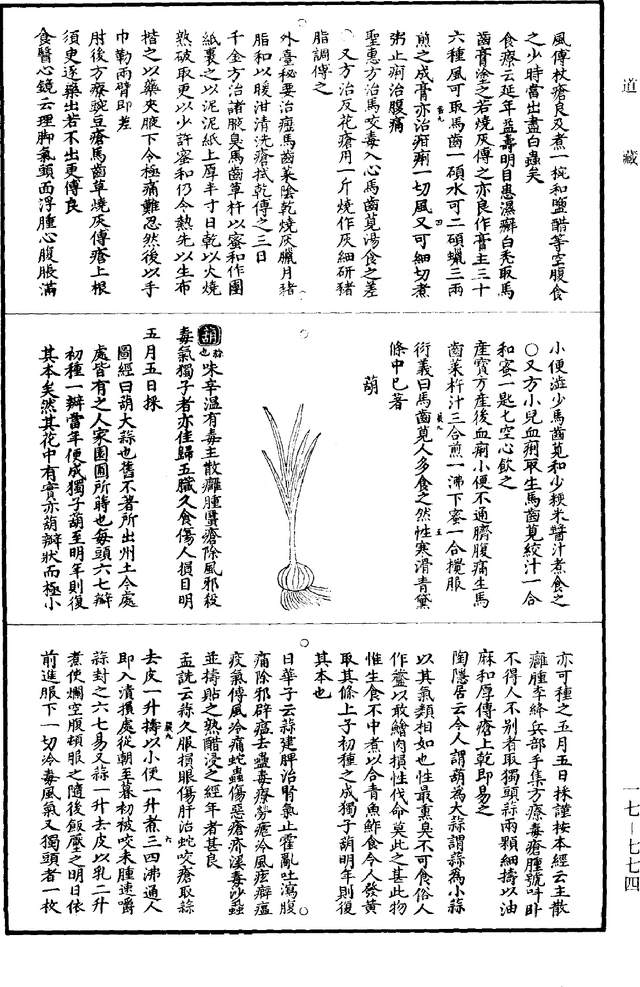 道藏
風傳杖瘡良及煮一椀和鹽醋等空腹食
之少時當出盡白蟲矣
食療云延年益壽明目患濕癬白禿取馬
齒膏塗之若燒灰傅之亦良作膏主三十
六種風可取馬齒一碩水可二碩蠟三兩
煎之成膏亦治疳痢一切風又可細切煮
粥止痢治腹痛
聖惠方治馬咬毒入心馬齒莧湯食之差
○又方治反花瘡用一斤燒作灰細研豬
脂調傅之
外臺秘要治瘂馬齒菜陰乾燒灰臘月豬
脂和以暖泔清洗瘡拭乾傅之三日
千金方治諸腋臭馬齒草杵以蜜和作團
紙裹之以泥泥紙上厚半寸日乾以火燒
熟破取更以少許蜜和仍令熱先以生布
揩之以藥夾腋下令極痛難忍然後以手
巾勒兩臂即差
肘後方療豌豆瘡馬齒草燒灰傅瘡上根
須臾逐藥出若不出更傅良
食醫心鏡云理脚氣頭面浮腫心腹脹滿
小便澁少馬齒莧和少粳米醬汁煮食之
○又方小兒血痢取生馬齒莧絞汁一合
和蜜一匙匕空心飲之
產寶方產後血痢小便不通臍腹痛生馬
齒菜杵汁三合煎一沸下蜜一合攪服
衍義曰馬齒莧人多食之然性寒滑青黛
條中已著
葫
葫蒜也味辛溫有毒主散癰腫䘌瘡除風邪殺
毒氣獨子者亦佳歸五臟久食傷人損目明
五月五日採
圖經曰葫大蒜也舊不著所出州土今處
處皆有之人家園圃所蒔也每頭六七瓣
初種一瓣當年便成獨子葫至明年則復
其本矣然其花中有實亦葫瓣狀而極小
亦可種之五月五日採謹按本經云主散
癰腫李絳兵部手集方療毒瘡腫號叫卧
不得人不別者取獨頭蒜兩顆細擣以油
麻和厚傅瘡上乾即易之
陶隱居云今人謂葫為大蒜謂蒜為小蒜
以其氣類相如也性最熏臭不可食俗人
作虀以敢鱠肉損性伐命莫此之甚此物
惟生食不中煮以合青魚鮓食令人發黃
取其條上子初種之成獨子葫明年則復
其本也
日華子云蒜健脾治腎氣止霍亂吐瀉腹
痛除邪辟瘟去蠱毒療勞瘧冷風痃癖瘟
疫氣傅風冷痛蛇蟲傷惡瘡疥溪毒沙蝨
並擣貼之熟醋浸之經年者甚良
孟詵云蒜久服損眼傷肝治蛇咬瘡取蒜
去皮一升擣以小便一升煮三四沸通人
即入漬損處從朝至暮初被咬未腫速嚼
蒜封之六七易又蒜一升去皮以乳二升
煮使爛空腹頓服之隨後飯壓之明日依
前進服下一切冷毒風氣又獨頭者一枚
一七—七七四